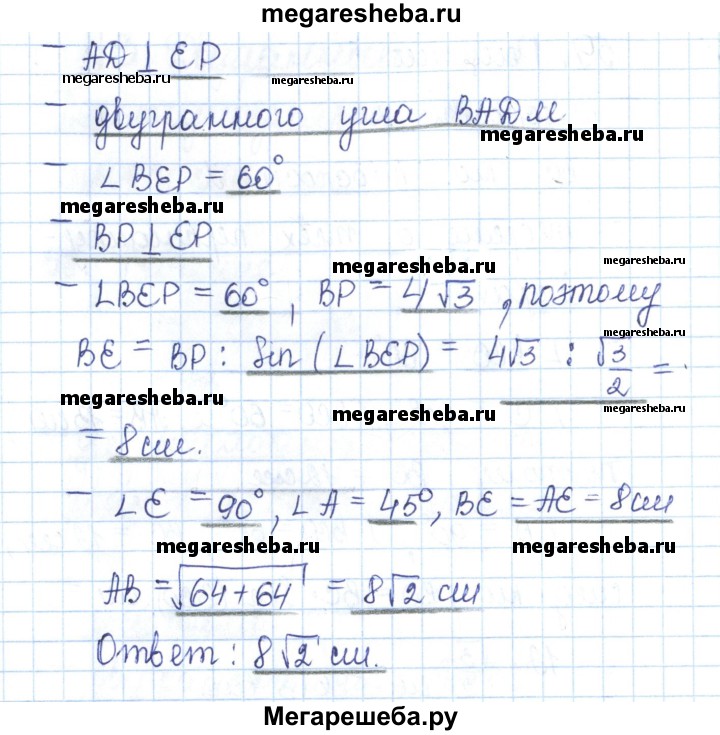 megaresheba.ru
– AD ⊥ EP
megaresheba.ru megaresheba.ru
– двугранного угла BADM
megaresheba.ru
– ∠BEP = 60°
megaresheba.ru
– BP ⊥ EP
megaresheba.ru
– ∠BEP = 60°, BP = 4√3, поэтому
megaresheba.ru
BE = BP : Sin (∠BEP) = 4√3 : √3/2 =
megaresheba.ru megaresheba.ru megaresheba.ru
= 8 см.
– ∠E = 90°, ∠A = 45°, BE = AE = 8 см
megaresheba.ru megaresheba.ru
AB = √64 + 64 = 8√2 см
megaresheba.ru
Ответ: 8√2 см.
Мегарешеба.ру